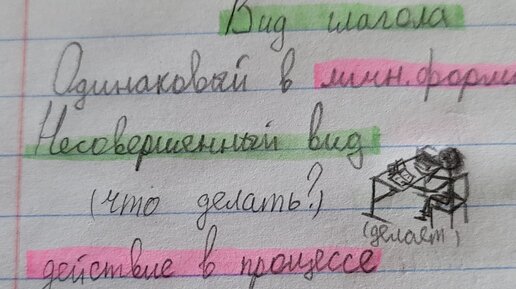 Вид глагола
Одинаковый в мнн.форма
Несовершенный вид
(что делать?)
(делает)
действие в процессе